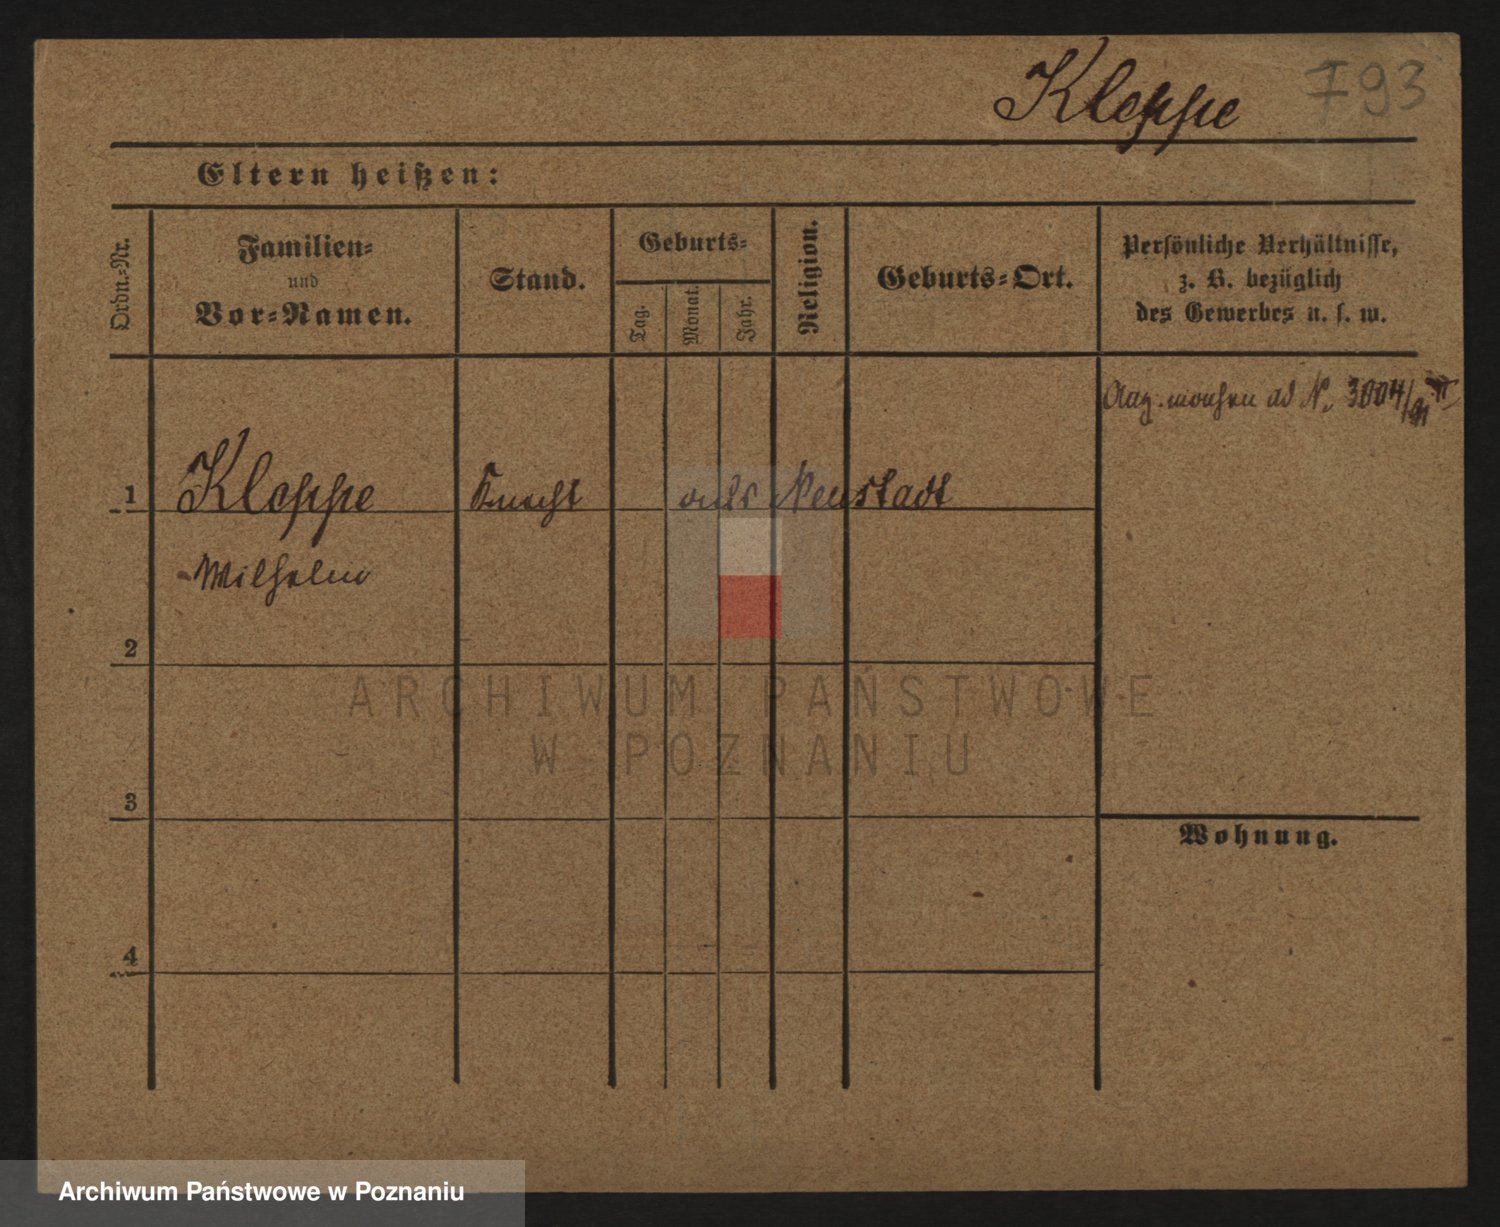 Kleppe 793
Eltern heißen:
Ordn.-Nr.
Familien-
und
Vor-Namen.
Stand.
Geburts-
Tag.
Monat.
Jahr.
Religion.
Geburts-Ort.
Persönliche Verhältnisse,
z. B. bezüglich
des Gewerbes u. s. w.
ad N. 3004/91 II
1 Kleppe Knecht aus Neustadt
Wilhelm
2
3
4
Wohnung.
ARCHIWUM PAŃSTWOWE
W POZNANIU
Archiwum Państwowe w Poznaniu